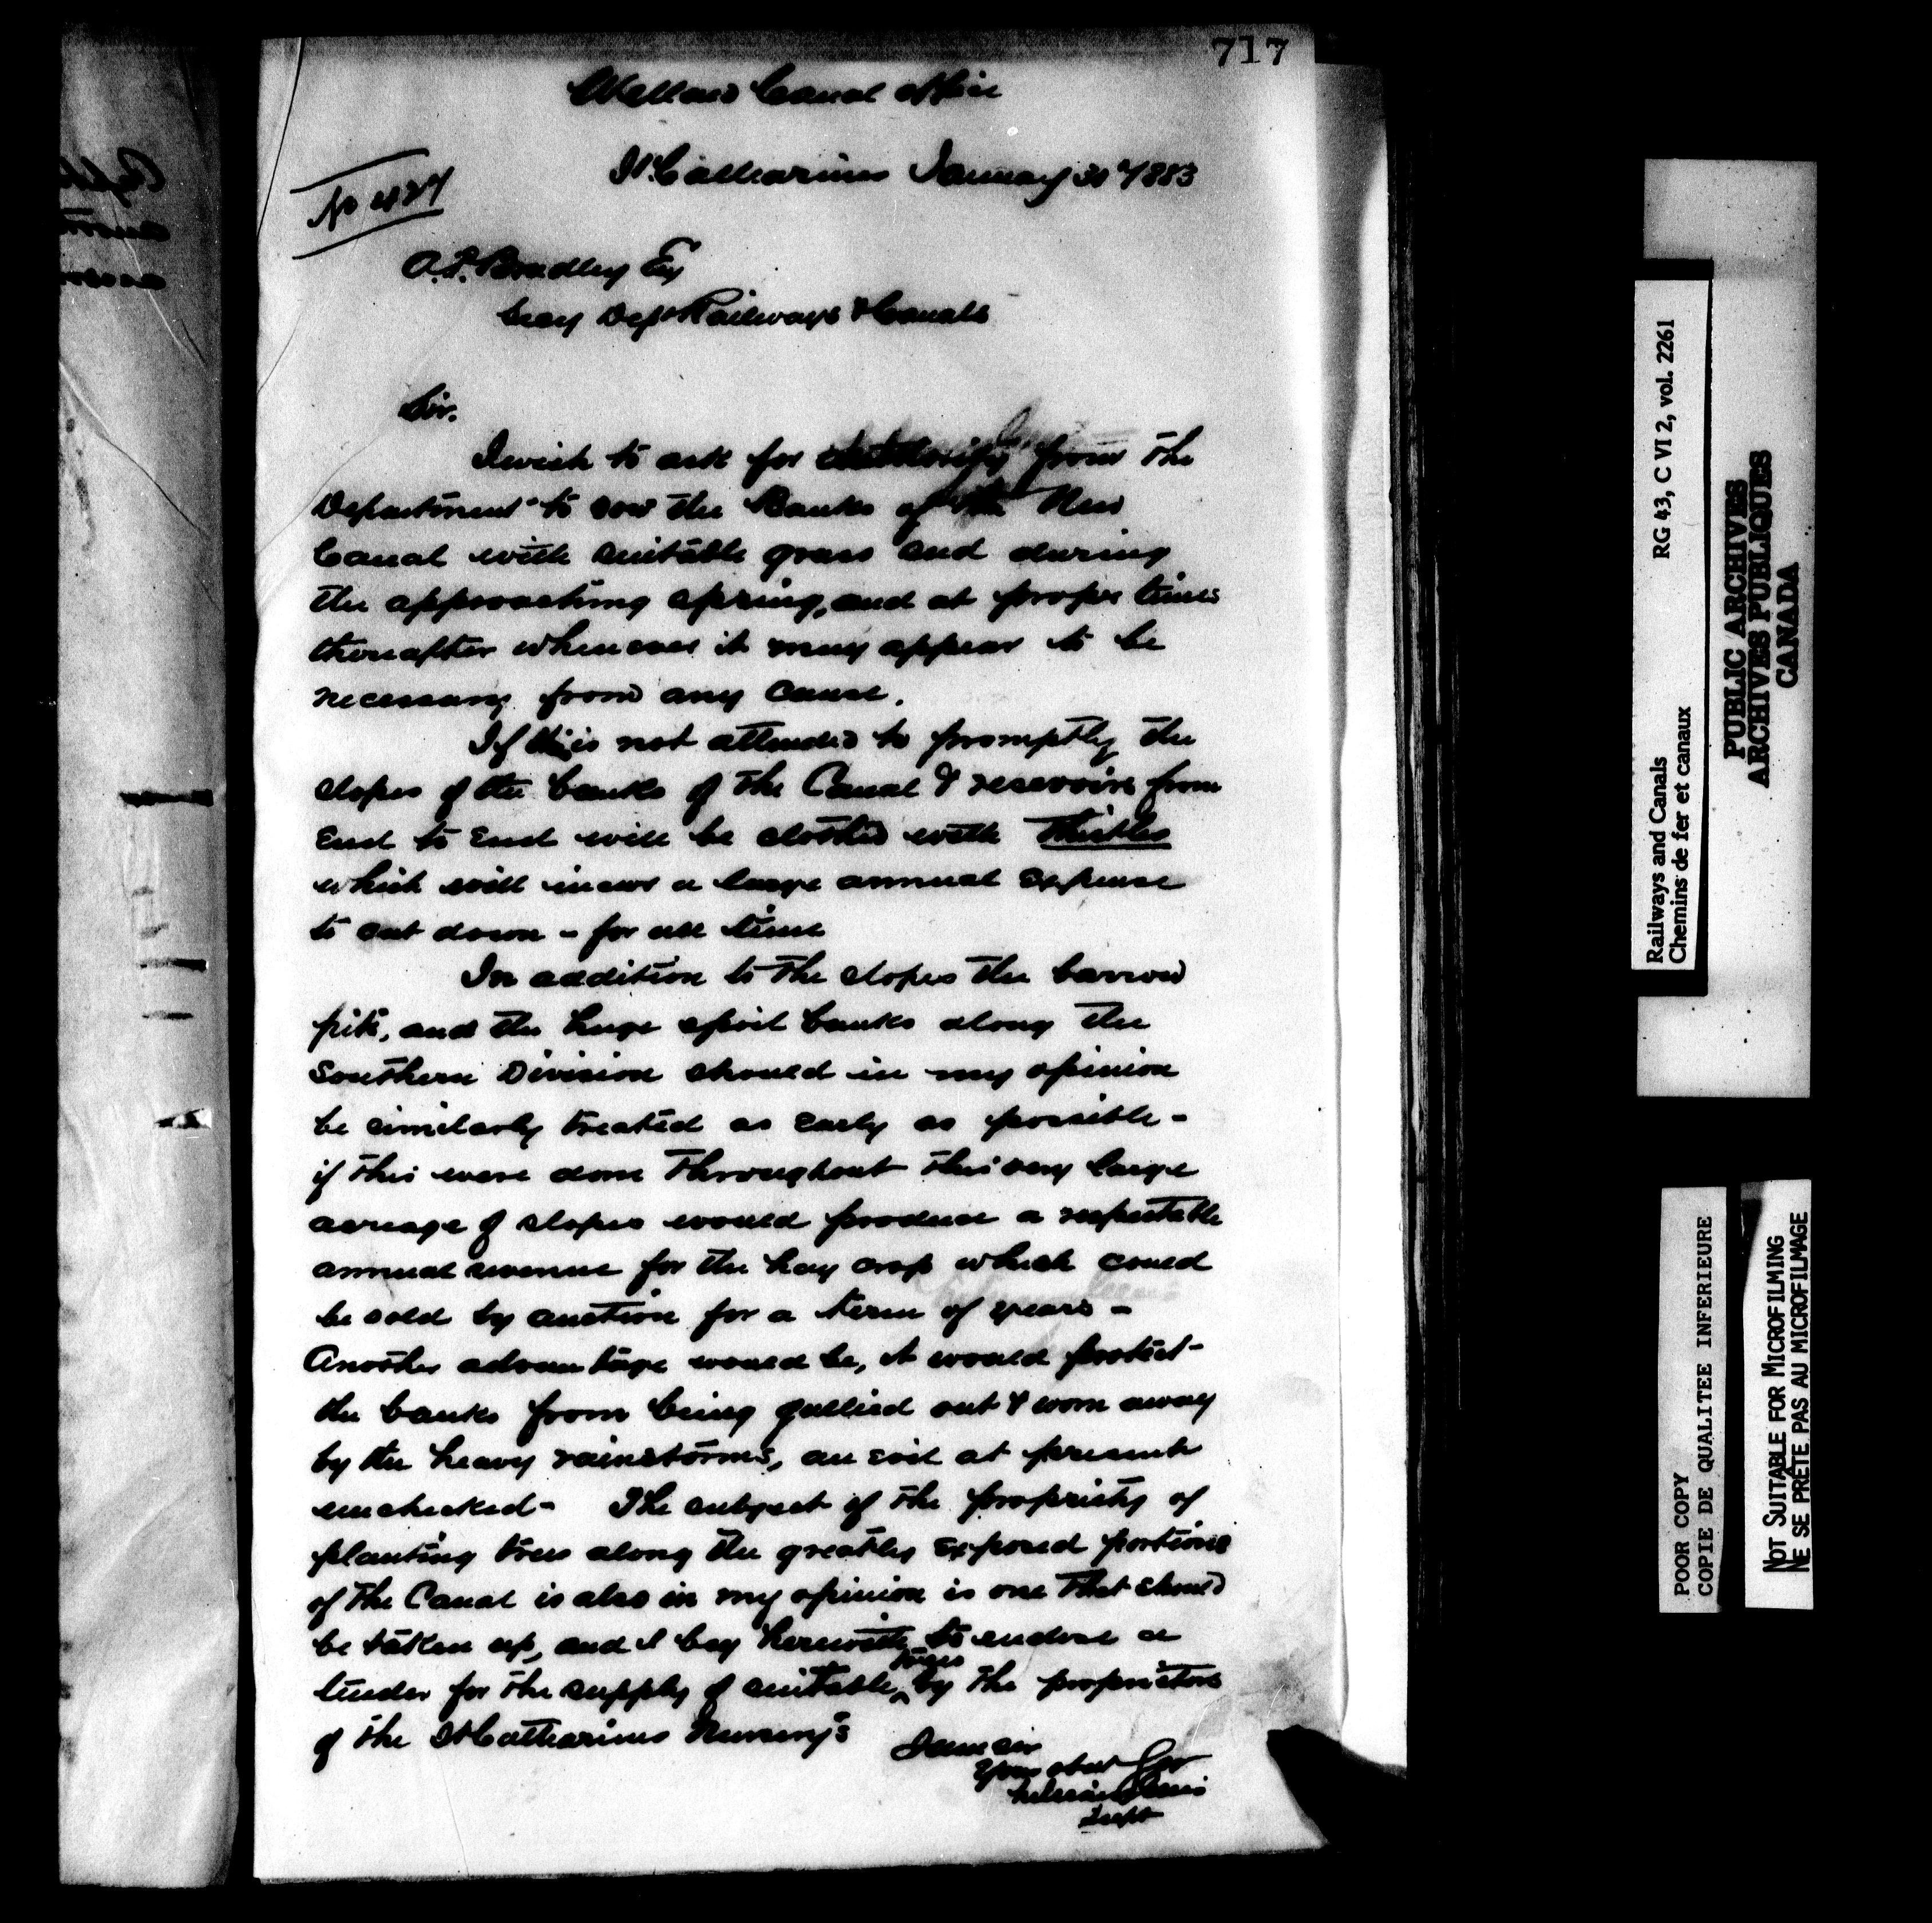 717
Welland Canal Office
St. Catharines January 31st 1883
No 427
A.P. Bradley Esq
Secy Dept Railways & Canals
Sir.
I wish to ask for authority from the
Department to sow the Banks of the New
Canal with suitable grass seed during
the approaching spring, and at proper times
thereafter whenever it may appear to be
necessary from any cause.
If this is not attended to promptly the
slopes of the banks of the Canal & reservoirs from
End to End will be clothed with Thistles
which will incur a large annual Expense
to cut down - for all time
In addition to the slopes the borrow
pits, and the huge spoil banks along the
Southern Division should in my opinion
be similarly treated as Early as possible -
if this were done throughout this very large
acreage of slopes would produce a respectable
annual revenue for the hay crop which could
be sold by auction for a term of years -
Another advantage would be, it would protect
the banks from being gullied out & worn away
by the heavy rainstorms, an evil at present
unchecked - The subject of the propriety of
planting trees along the greatly Exposed portions
of the Canal is also in my opinion is one that should
be taken up, and I beg herewith to enclose a
tender for the supply of suitable trees by the proprietors
of the St Catharines Nursery's
I am sir
Your obdt Sr
Supt
Railways and Canals RG 43, C VI 2, vol. 2261
Chemins de fer et canaux
PUBLIC ARCHIVES
ARCHIVES PUBLIQUES
CANADA
POOR COPY
COPIE DE QUALITEE INFERIEURE
NOT SUITABLE FOR MICROFILMING
NE SE PRÊTE PAS AU MICROFILMAGE